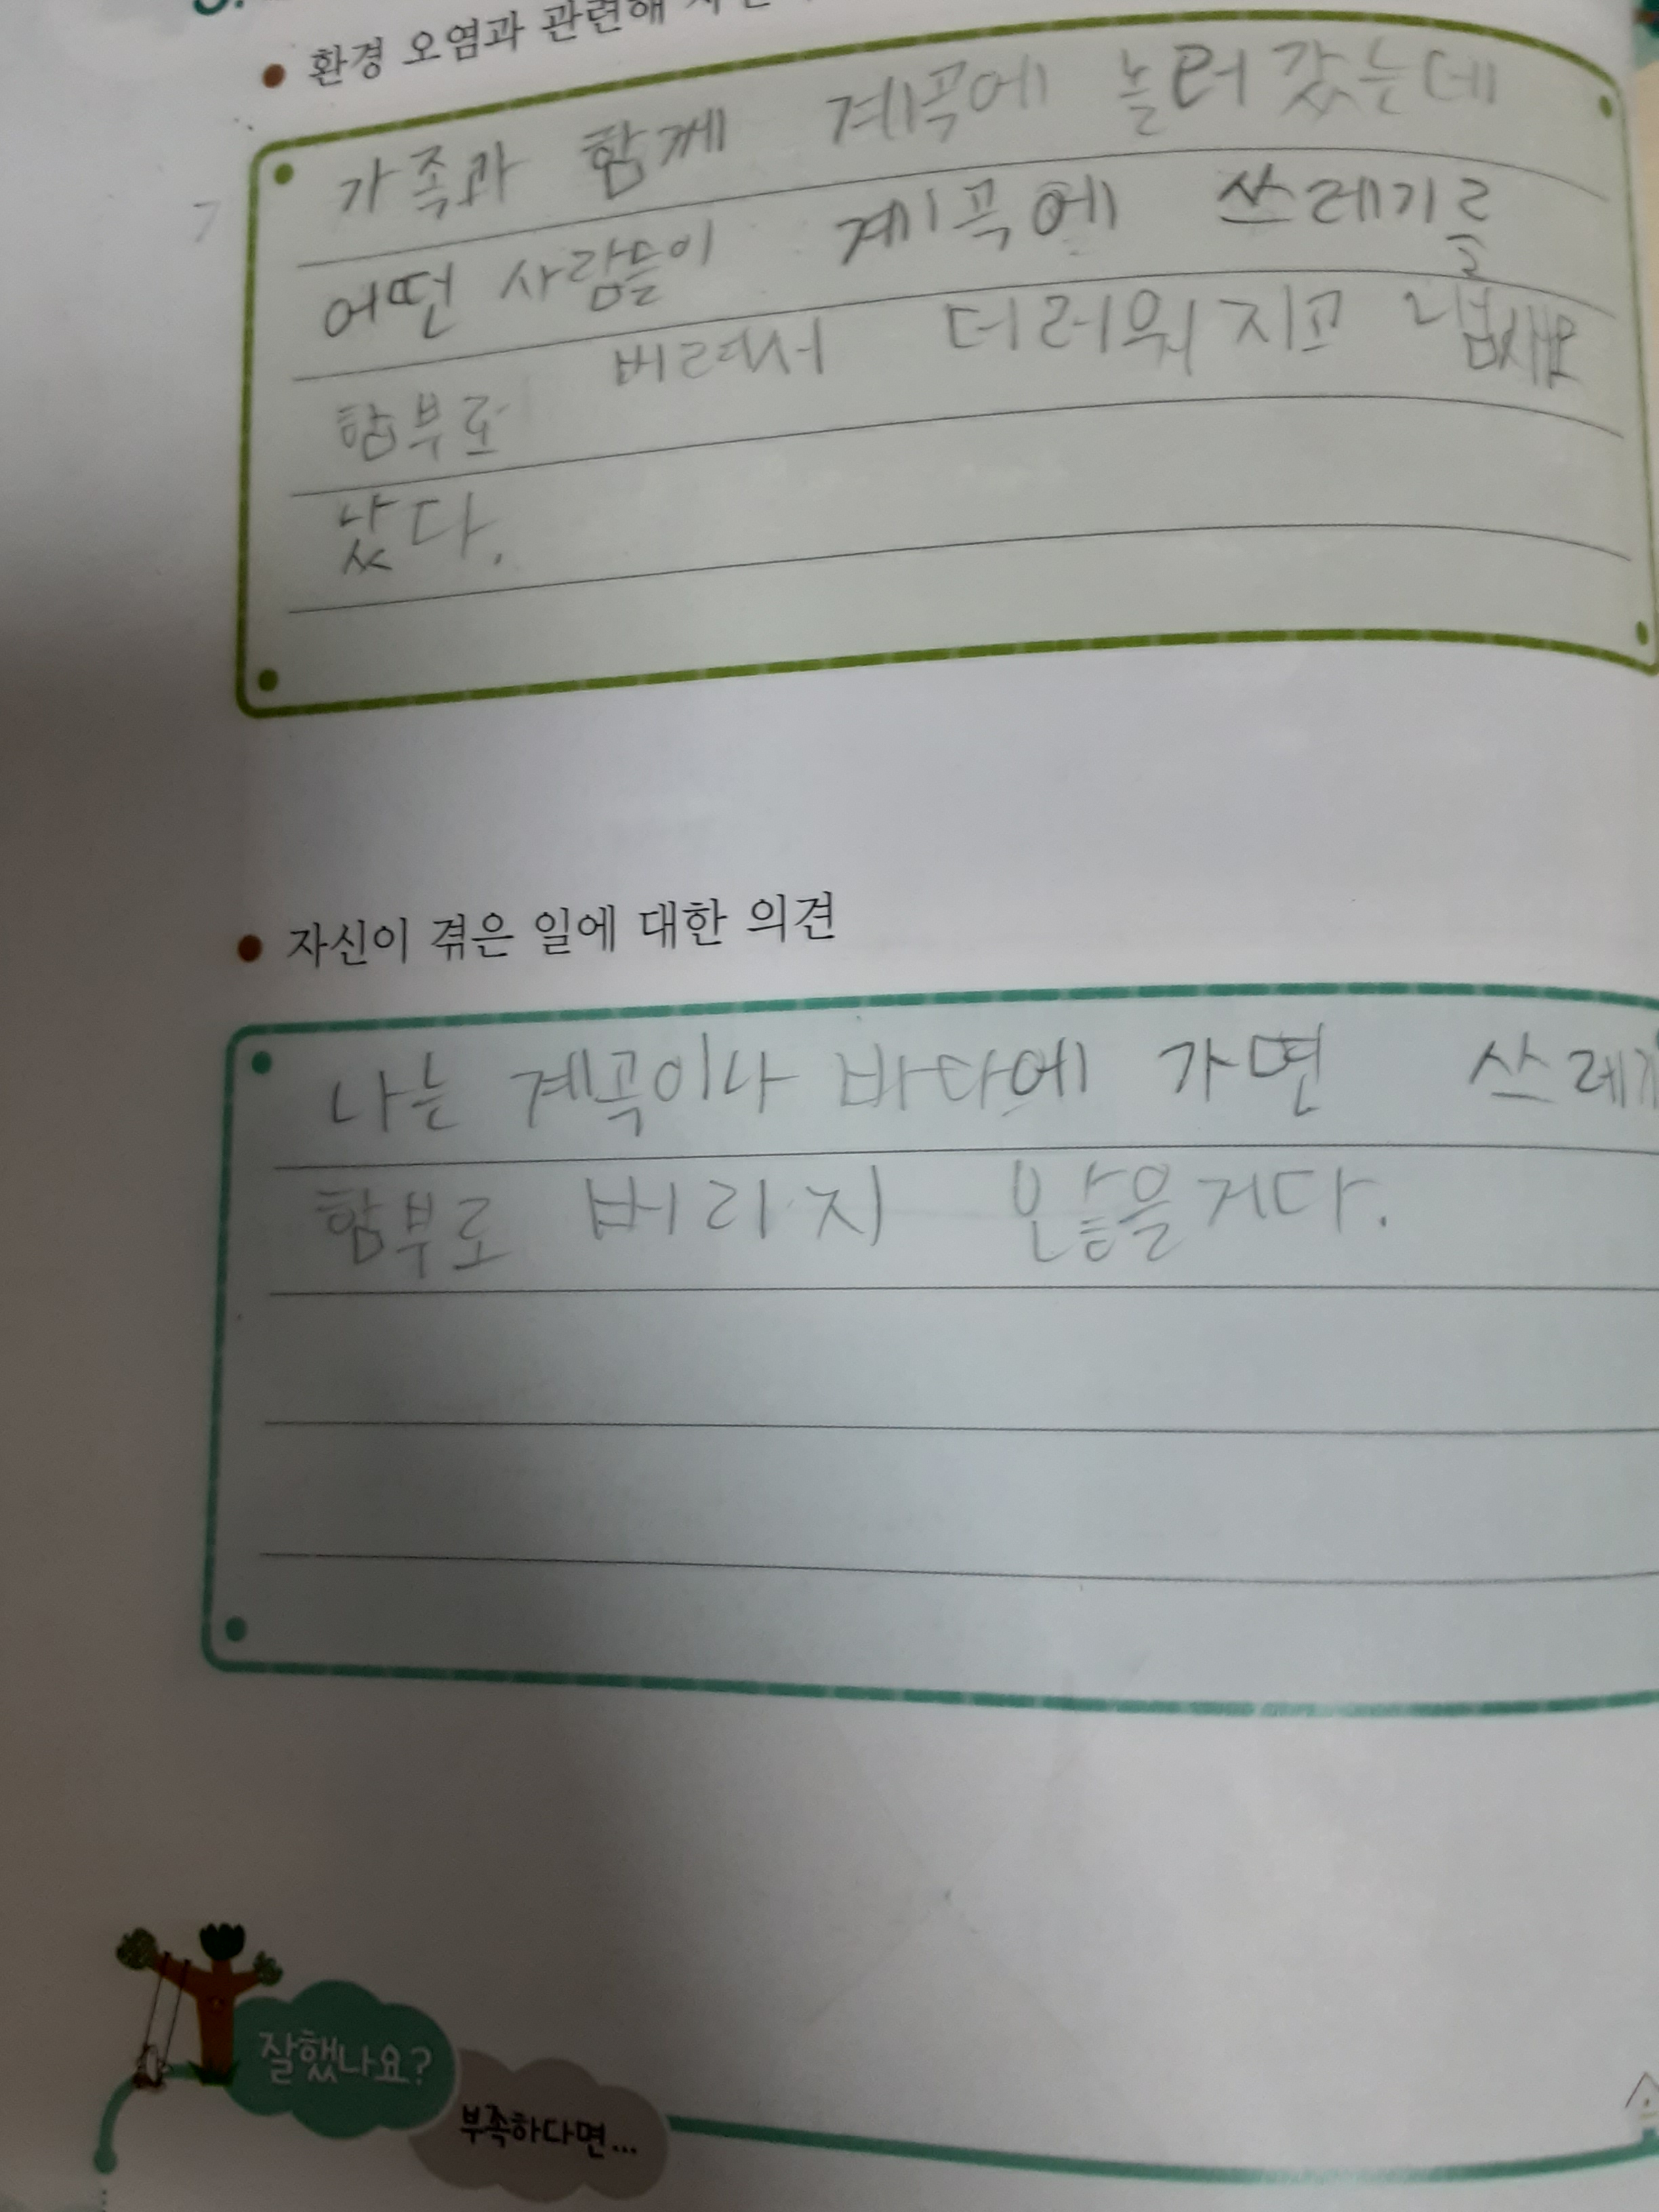 ● 환경 오염과 관련해
가족과 함께 계곡에 놀러 갔는데
어떤 사람들이 계곡에 쓰레기를
함부로 버려서 더러워지고 냄새도
났다.
● 자신이 겪은 일에 대한 의견
나는 계곡이나 바다에 가면 쓰레기
함부로 버리지 않을거다.
잘했나요?
부족하다면...